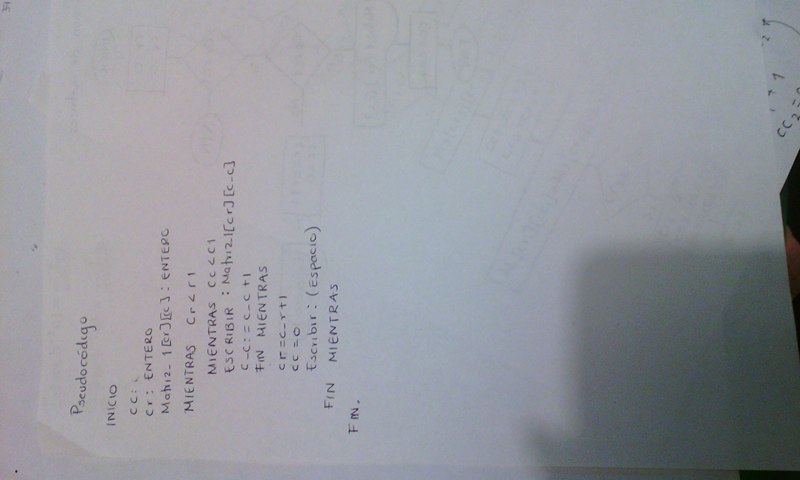 Pseudocódigo
INICIO
cc:
cr: ENTERO
Matriz_1[cr][c]: ENTERO
MIENTRAS cr<r1
MIENTRAS cc<c1
ESCRIBIR : Matriz1[cr][c-c]
c-c:=c-c+1
FIN MIENTRAS
cr=c-r+1
cc=0
Escribir: (Espacio)
FIN MIENTRAS
FIN.